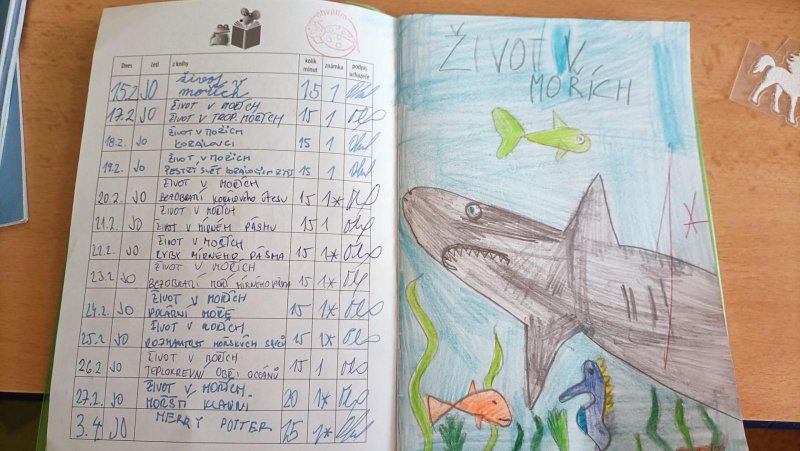 chválím
Dnes četl z knihy kolik minut známka podpis uchazeče
15.2. JO život v mořích 15 1
17.2. JO ŽIVOT V MOŘÍCH
ŽIVOT V TROP. MOŘÍCH 15 1
18.2. JO ŽIVOT V MOŘÍCH
KORÁLOVCI 15 1
19.2. JO ŽIVOT V MOŘÍCH
PESTRÝ SVĚT 15 1
20.2. JO ŽIVOT V MOŘÍCH
BEZOBRATLÍ KORÁLOVÉHO ÚTESU 15 1*
21.2. JO ŽIVOT V MOŘÍCH
ŽIVOT V MÍRNÉM PÁSMU 15 1
22.2. JO ŽIVOT V MOŘÍCH
RYBY MÍRNÉHO PÁSMA 15 1*
23.2. JO ŽIVOT V MOŘÍCH
BEZOBRATLÍ MOŘÍ MÍRNÉHO PÁSMA 15 1*
24.2. JO ŽIVOT V MOŘÍCH
POLÁRNÍ MOŘE 15 1*
25.2. JO ŽIVOT V MOŘÍCH
ROZMANITOST MOŘSKÝCH SAVCŮ 15 1*
26.2. JO ŽIVOT V MOŘÍCH
TEPLOKREVNÍ OBŘI OCEÁNŮ 15 1
27.2. JO ŽIVOT V MOŘÍCH
MOŘŠTÍ KLAUNI 20 1*
3.4. JO HERRY POTTER 25 1*
ŽIVOT V
MOŘÍCH